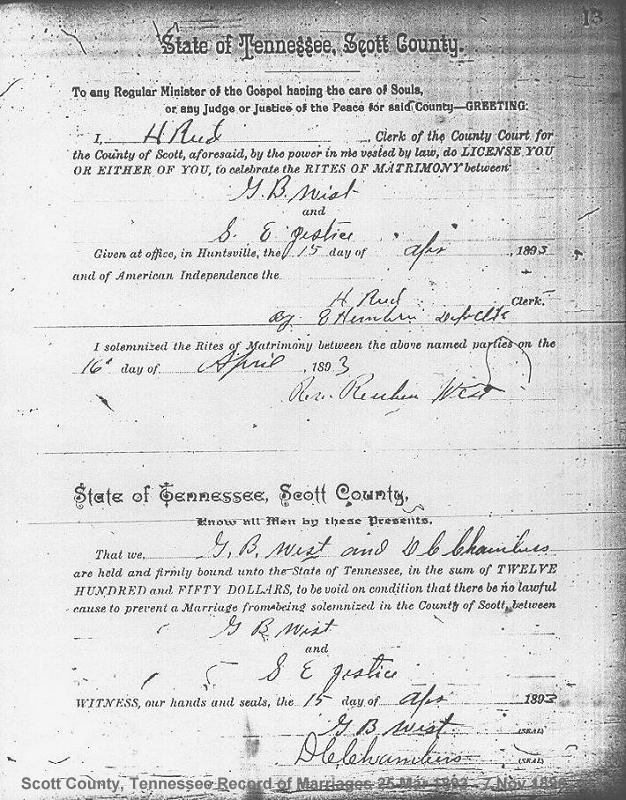 13
State of Tennessee, Scott County.
To any Regular Minister of the Gospel having the care of Souls,
or any Judge or Justice of the Peace for said County—GREETING:
I, H Reed Clerk of the County Court for
the County of Scott, aforesaid, by the power in me vested by law, do LICENSE YOU
OR EITHER OF YOU, to celebrate the RITES OF MATRIMONY between
G. B. West
and
S. E Jestice
Given at office, in Huntsville, the 15 day of Apr , 1893
and of American Independence the
H Reed Clerk.
By E
I solemnized the Rites of Matrimony between the above named parties on the
16 day of April , 1893
Rev. Reuben West
State of Tennessee, Scott County,
Know all Men by these Presents,
That we, G. B. West and D C Chambers
are held and firmly bound unto the State of Tennessee, in the sum of TWELVE
HUNDRED and FIFTY DOLLARS, to be void on condition that there be no lawful
cause to prevent a Marriage from being solemnized in the County of Scott, between
G B West
and
S E Jestice
WITNESS, our hands and seals, the 15 day of Apr 1893
G B West (SEAL)
D C Chambers (SEAL)
Scott County, Tennessee Record of Marriages 25 Mar - 7 Nov